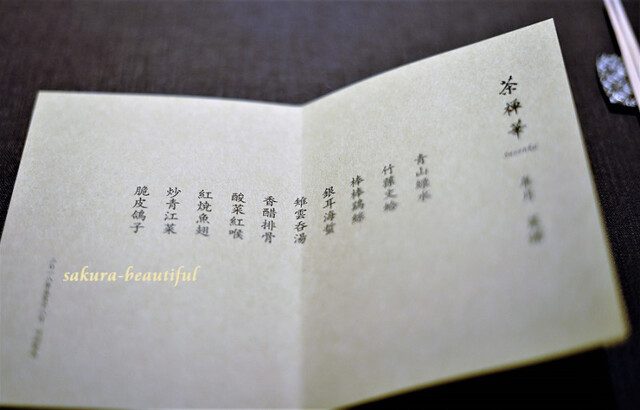 茶禅華
青山緑水
棒棒鶏絲
銀耳海蜇
雉雲呑湯
香醋排骨
酸菜紅喉
紅焼魚翅
炒青江菜
脆皮鴿子
sakura-beautiful